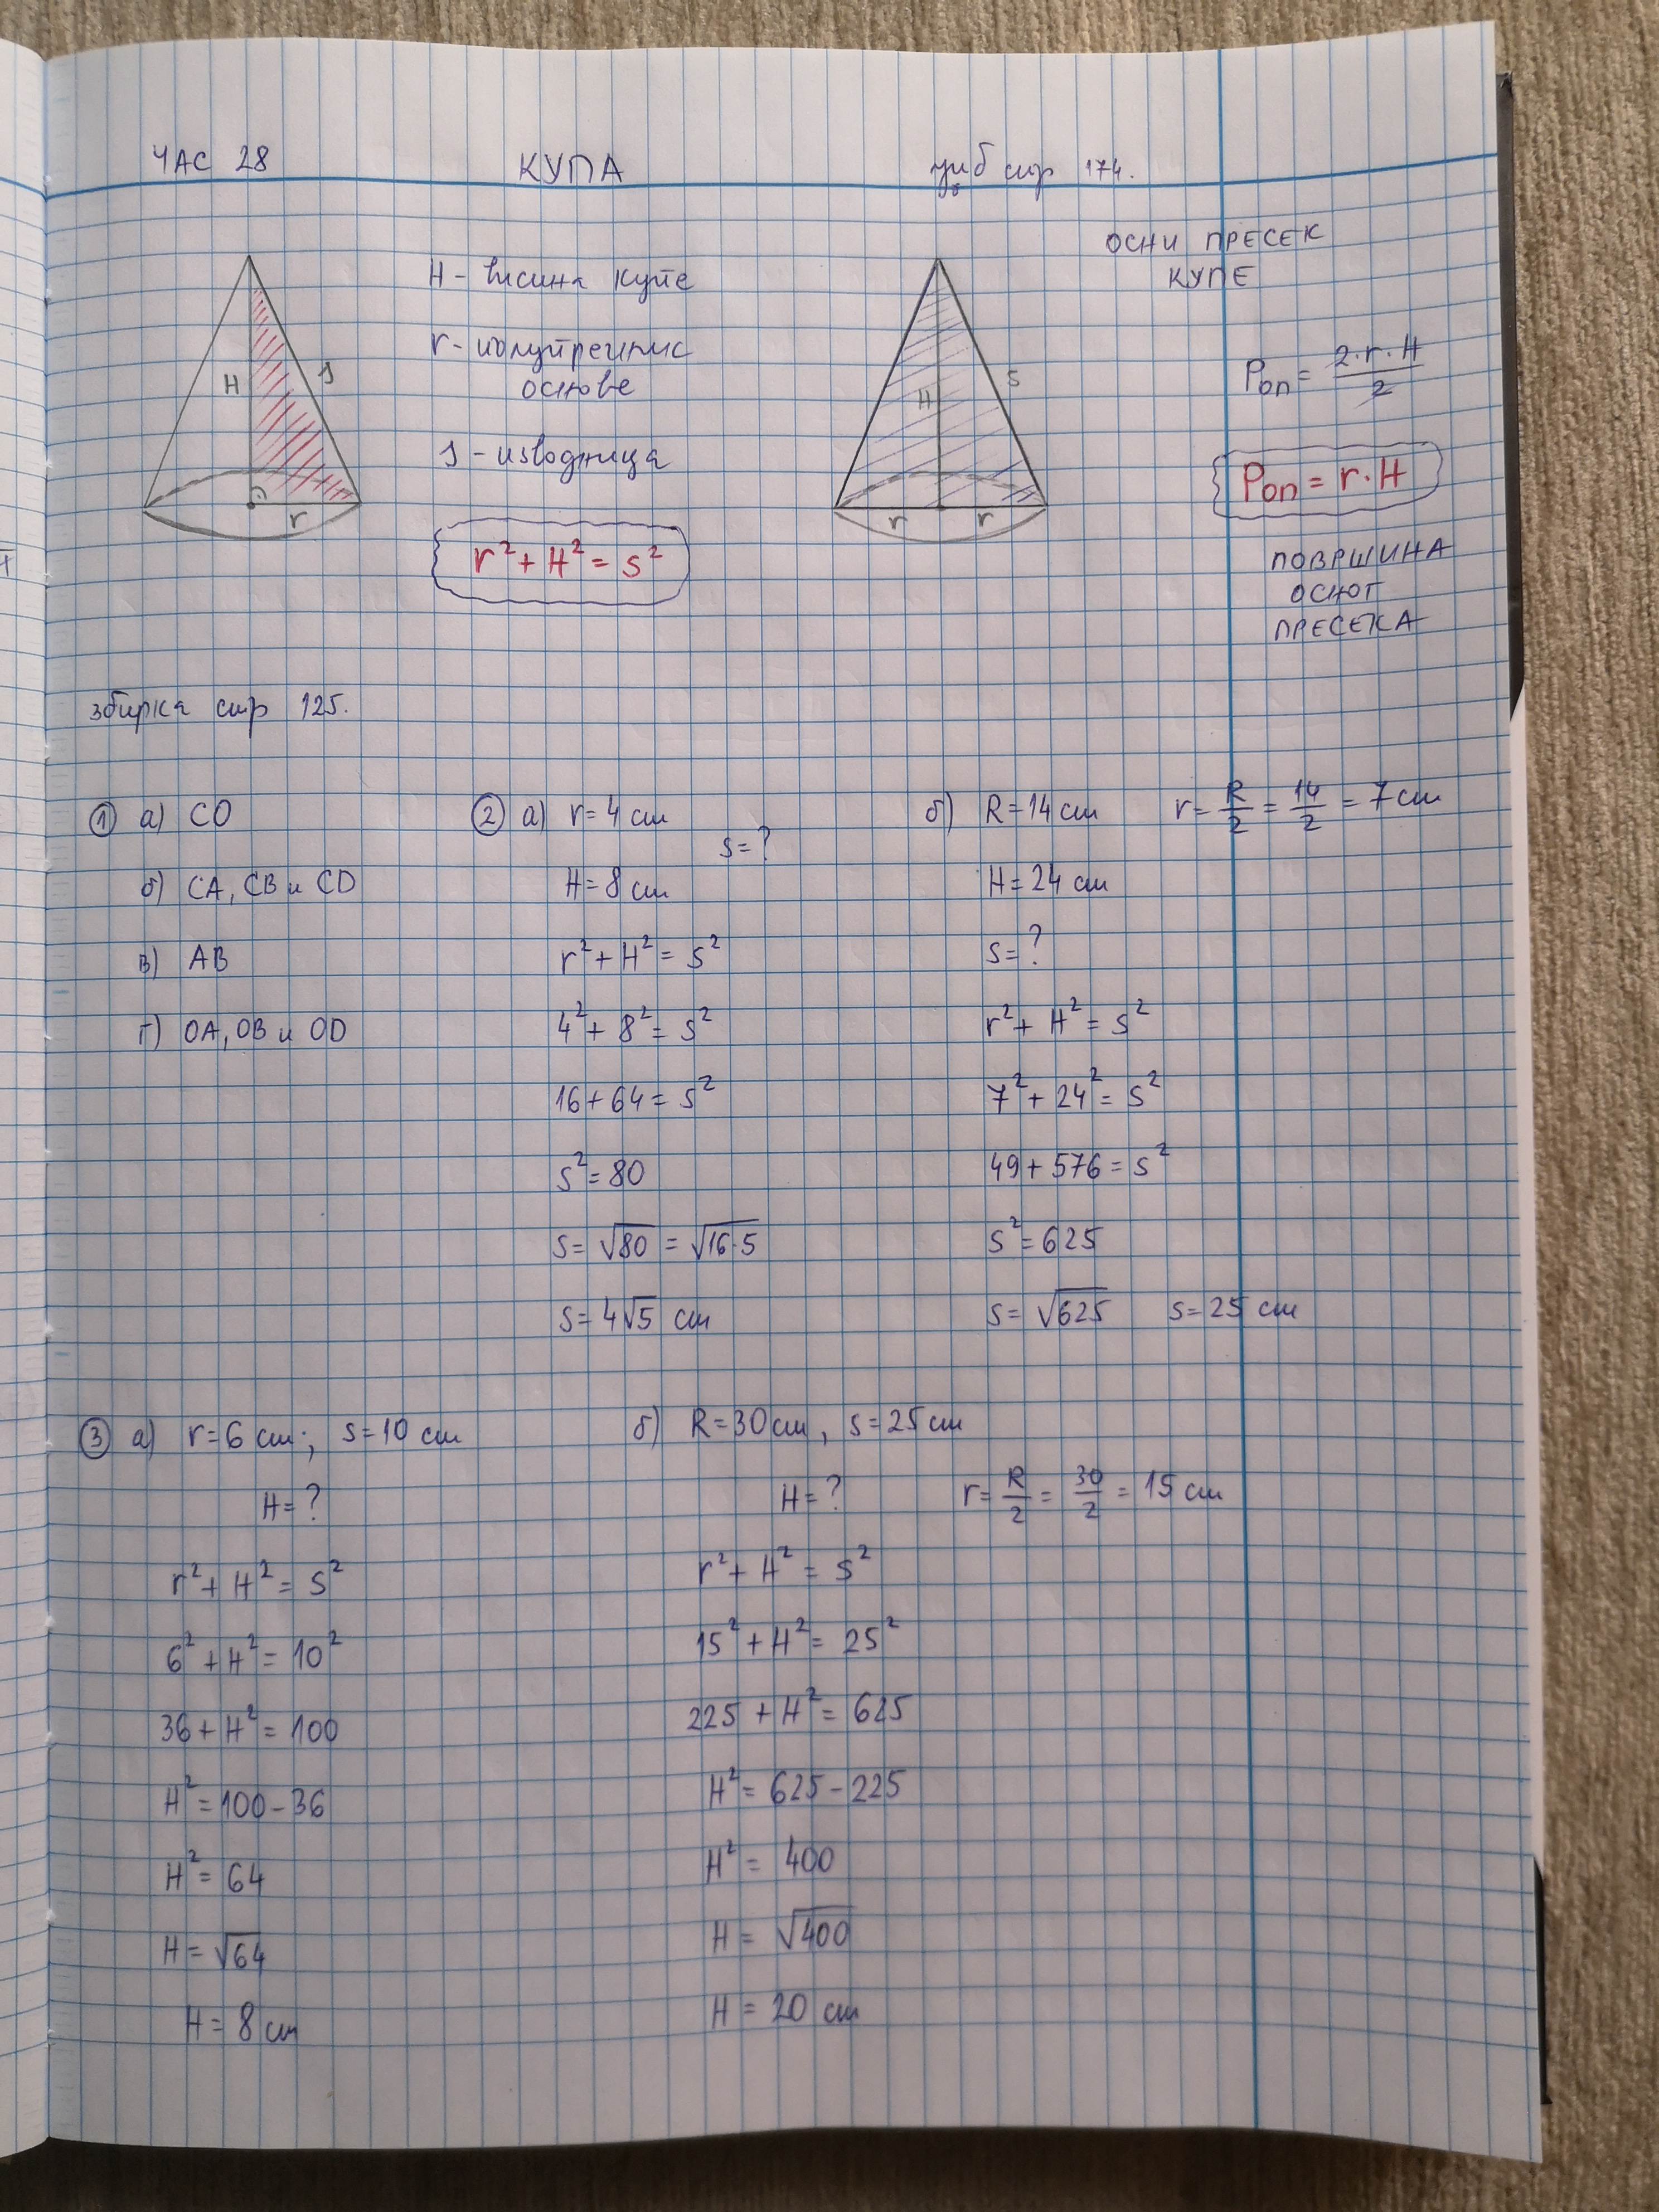 ЧАС 28 КУПА уџб стр 174.
H - висина купе
r - полупречник
основе
s - изводница
r² + H² = s²
H s r
H s r r
ОСНИ ПРЕСЕК
КУПЕ
Pоп = 2·r·H/2
Pоп = r·H
ПОВРШИНА
ОСНОГ
ПРЕСЕКА
збирка стр 125.
① а) CO
б) CA, CB и CD
в) AB
г) OA, OB и OD
② а) r = 4 cm
s = ?
H = 8 cm
r² + H² = s²
4² + 8² = s²
16 + 64 = s²
s² = 80
s = √80 = √16·5
s = 4√5 cm
б) R = 14 cm r = R/2 = 14/2 = 7 cm
H = 24 cm
s = ?
r² + H² = s²
7² + 24² = s²
49 + 576 = s²
s² = 625
s = √625 s = 25 cm
③ а) r = 6 cm; s = 10 cm
H = ?
r² + H² = s²
6² + H² = 10²
36 + H² = 100
H² = 100 - 36
H² = 64
H = √64
H = 8 cm
б) R = 30 cm, s = 25 cm
H = ? r = R/2 = 30/2 = 15 cm
r² + H² = s²
15² + H² = 25²
225 + H² = 625
H² = 625 - 225
H² = 400
H = √400
H = 20 cm